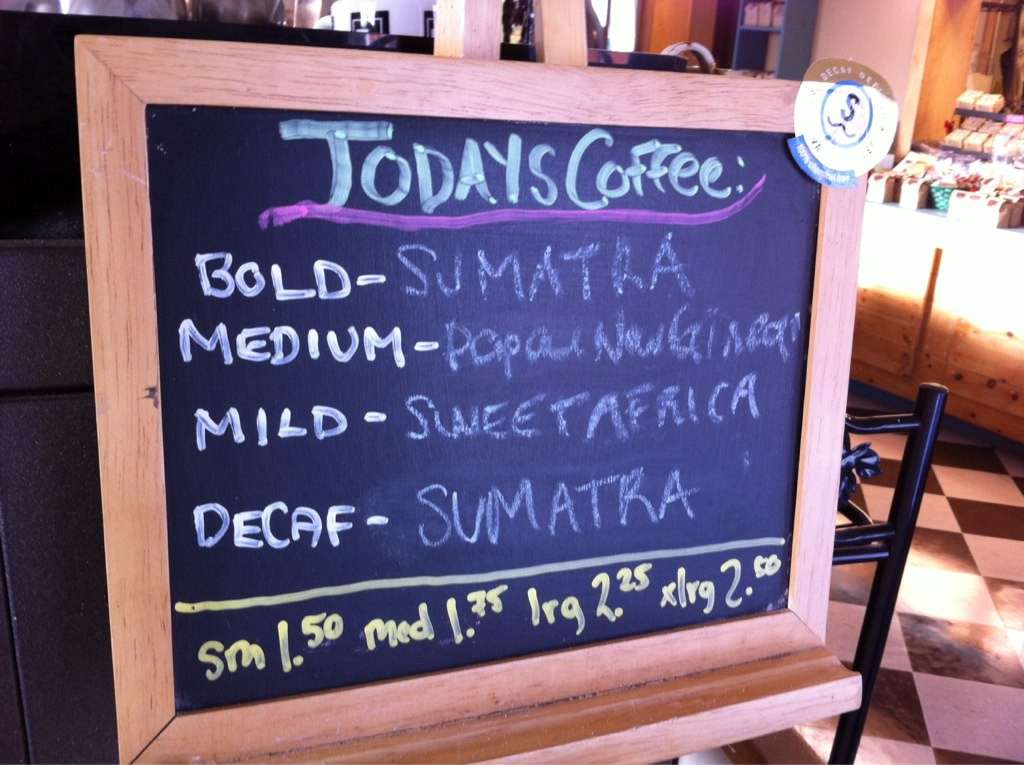 TODAYS Coffee:
BOLD - SUMATRA
MEDIUM - Papau New Gineea
MILD - SWEET AFRICA
DECAF - SUMATRA
sm 1.50 med 1.75 lrg 2.25 xlrg 2.50